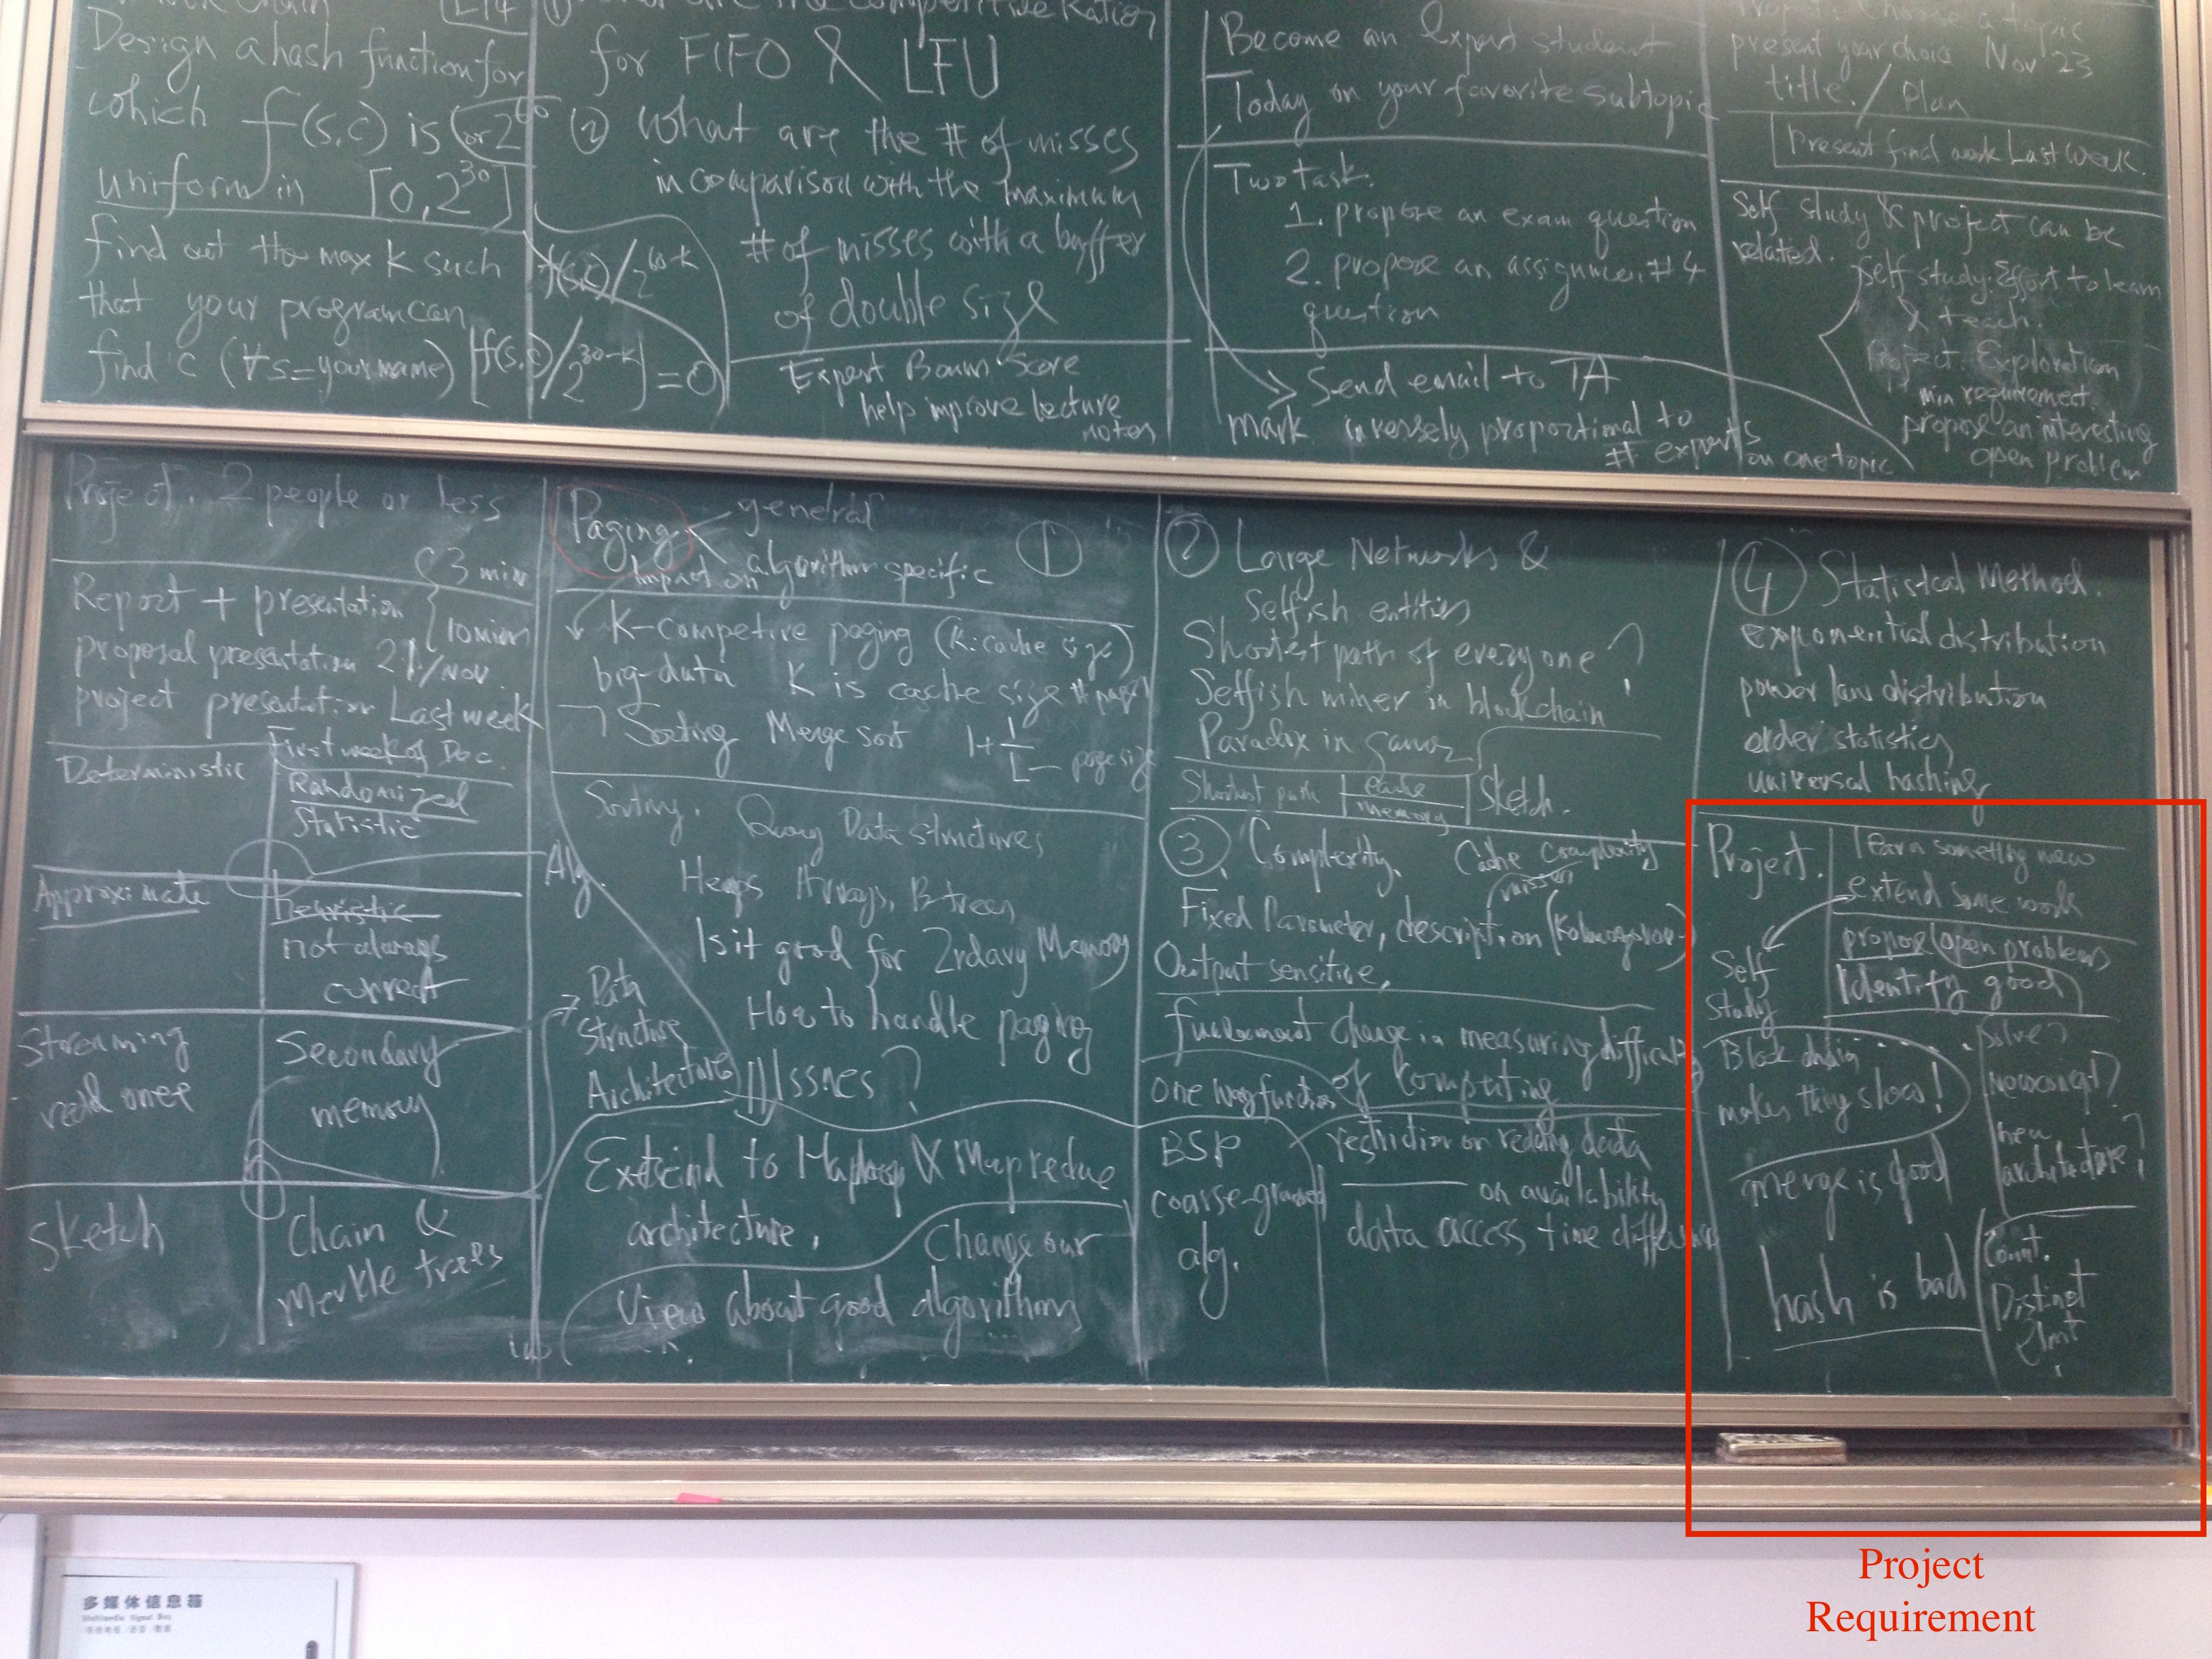 Design a hash function for
which f(s,c) is (or 2^60
uniform in [0,2^30]
find out the max k such
that your program can
find c (∀s=your name) [f(s,c)/2^30-k] = 0
f(s,c)/2^60-k
for FIFO & LFU
② What are the # of misses
in comparison with the maximum
# of misses with a buffer
of double size
Expert Bonus Score
help improve lecture
notes
Become an expert student
Today on your favorite subtopic
Two task.
1. propose an exam question
2. propose an assignment #4
question
Send email to TA
mark inversely proportional to
# experts on one topic
Project: Choose a topic
present your choice Nov 23
title / Plan
Present final work Last Week.
Self study & project can be
related.
self study: Effort to learn
& teach.
Project: Exploration
min requirement.
propose an interesting
open problem
Project: 2 people or less
3 min
Report + presentation
10 min
proposal presentation 21/Nov
project presentation Last week
First week of Dec.
Deterministic
Randomized
Statistic
Approximate
heuristic
not always
correct
Streaming
read once
Secondary
memory
Sketch
Chain &
Merkle trees
Alg.
Data
Structure
Architecture
Paging
general
Impact on algorithm specific
①
K-competive paging (K: cache size)
big-data K is cache size # page
Sorting Merge sort 1+1/L L— page size
Sorting. Query Data structures
Heaps Arrays, B trees
Is it good for 2rdary Memory
How to handle paging
Issues?
Extend to Hadoop & Map reduce
architecture. Change our
View about good algorithms
② Large Networks &
Selfish entities
Shortest path of everyone?
Selfish miner in blockchain
Paradox in games
Shortest path cache
memory
Sketch.
③ Complexity. Cache complexity
misses
Fixed Parameter, description (Kolmogorov)
Output sensitive.
Fundament change in measuring difficulty
of computing
one way function
BSP
coarse-grained
alg.
restriction on reading data
on availability
data access time difference
④ Statistical Method.
exponential distribution
power law distribution
order statistics
universal hashing
Project.
learn something new
extend some work
propose (open problem)
Identify good
Self
Study
Block chain
makes thing slow!
merge is good
hash is bad
solve?
new concept?
new
architecture?
Count.
Distinct
Elmt
Project
Requirement
多媒体信息箱
Multimedia Signal Box